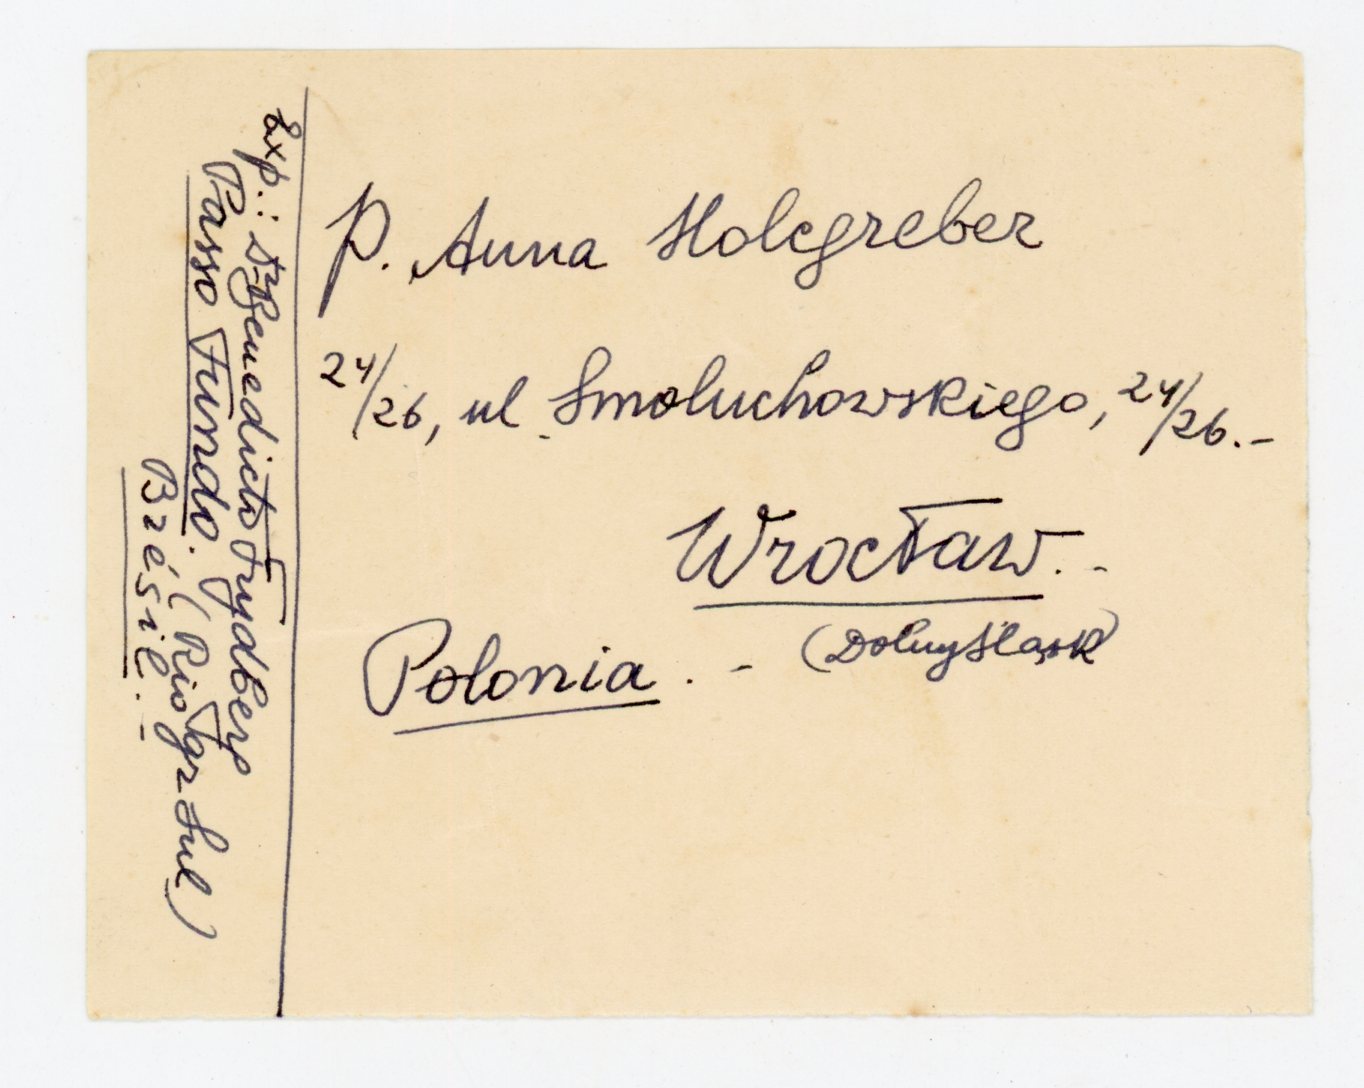 P. Anna Holcgreber
24/26, ul. Smoluchowskiego, 24/26.-
Wrocław.-
(Dolny Śląsk)
Polonia.-
Exp.: Dr Benedicto Frydberg
Passo Fundo. (Rio gr Sul)
Brésil.-